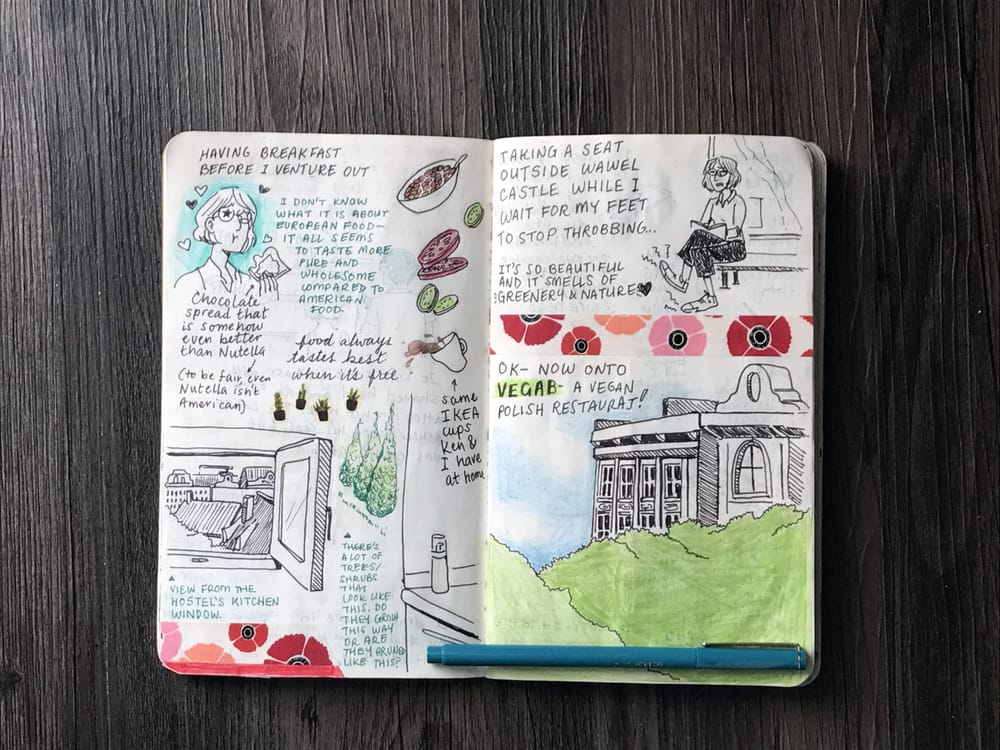 HAVING BREAKFAST
BEFORE I VENTURE OUT
I DON'T KNOW
WHAT IT IS ABOUT
EUROPEAN FOOD—
IT ALL SEEMS
TO TASTE MORE
PURE AND
WHOLESOME
COMPARED TO
AMERICAN
FOOD.
Chocolate
spread that
is somehow
even better
than Nutella
(to be fair, even
Nutella isn't
American)
food always
tastes best
when it's free
same
IKEA
cups
Ken &
I have
at home
VIEW FROM THE
HOSTEL'S KITCHEN
WINDOW.
THERE'S
A LOT OF
TREES/
SHRUBS
THAT
LOOK LIKE
THIS. DO
THEY GROW
THIS WAY
OR ARE
THEY PRUNED
LIKE THIS?
TAKING A SEAT
OUTSIDE WAWEL
CASTLE WHILE I
WAIT FOR MY FEET
TO STOP THROBBING...
IT'S SO BEAUTIFUL
AND IT SMELLS OF
GREENERY & NATURE
OK— NOW ONTO
VEGAB— A VEGAN
POLISH RESTAURAJ!